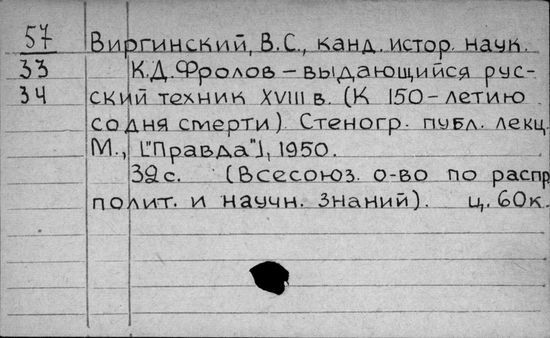 57 Виргинский, В.С., канд. истор. наук.
33 К.Д.Фролов – выдающийся рус-
34 ский техник XVIII в. (К 150-летию
со дня смерти). Стеногр. публ. лекц.
М., ["Правда"], 1950.
32 с. (Всесоюз. о-во по распр
полит. и научн. знаний). ц. 60к.